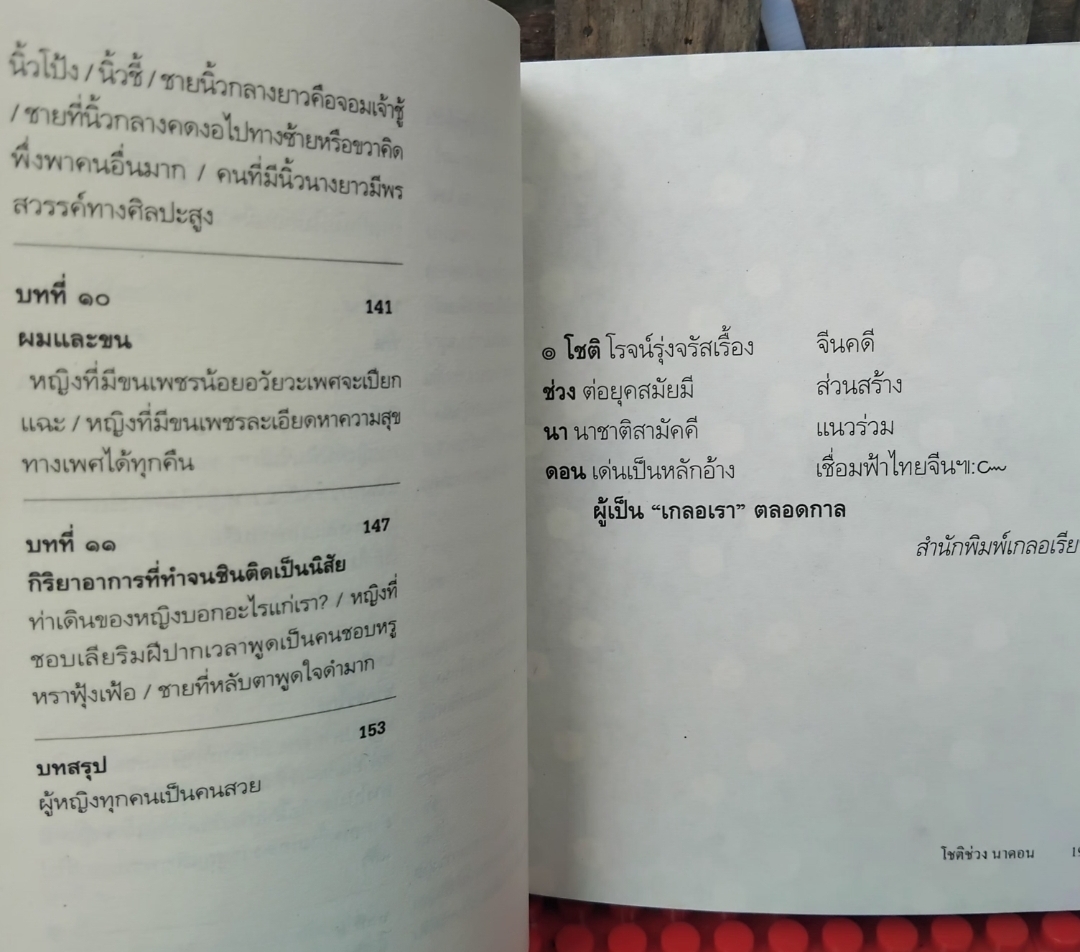 นิ้วโป้ง / นิ้วชี้ / ชายนิ้วกลางยาวคือจอมเจ้าชู้
/ ชายที่นิ้วกลางคดงอไปทางซ้ายหรือขวาคิด
พึ่งพาคนอื่นมาก / คนที่มีนิ้วนางยาวมีพร
สวรรค์ทางศิลปะสูง
บทที่ ๑๐ 141
ผมและขน
หญิงที่มีขนเพชรน้อยอวัยวะเพศจะเปียก
แฉะ / หญิงที่มีขนเพชรละเอียดหาความสุข
ทางเพศได้ทุกคืน
บทที่ ๑๑ 147
กิริยาอาการที่ทำจนชินติดเป็นนิสัย
ท่าเดินของหญิงบอกอะไรแก่เรา? / หญิงที่
ชอบเลียริมฝีปากเวลาพูดเป็นคนชอบหรู
หราฟุ้งเฟ้อ / ชายที่หลับตาพูดใจดำมาก
บทสรุป 153
ผู้หญิงทุกคนเป็นคนสวย
๏ โชติ โรจน์รุ่งจรัสเรื้อง จีนคดี
ช่วง ต่อยุคสมัยมี ส่วนสร้าง
นา นาชาติสามัคคี แนวร่วม
ดอน เด่นเป็นหลักอ้าง เชื่อมฟ้าไทยจีนฯ๛
ผู้เป็น “เกลอเรา” ตลอดกาล
สำนักพิมพ์เกลอเรีย
โชติช่วง นาดอน